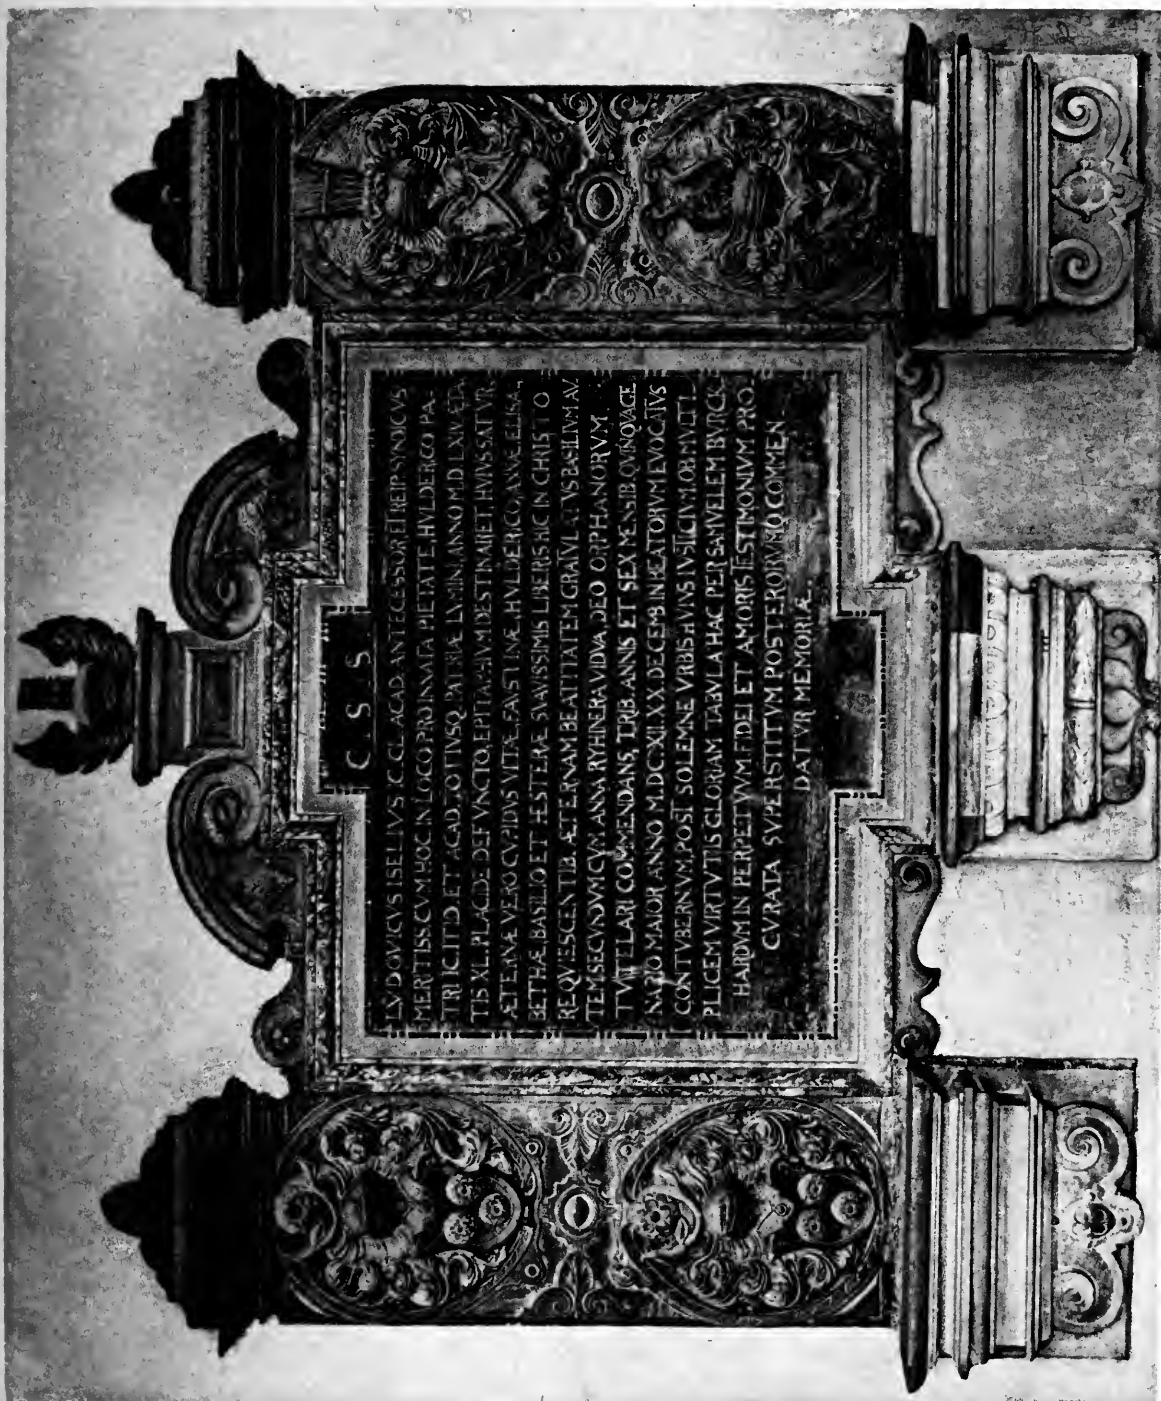 C. S. S.
LVDOVICVS ISELIVS I. C. CL. ACAD. ANTECESSOR ET REIP. SYNDICVS
MERITISS. CVM HOC IN LOCO PRO INNATA PIETATE, HVLDERICO PA.
TRI, ICTI ID ET ACAD. TOTIVSQ. PATRIÆ LVMINI ANNO M.D.LXV. ÆTA.
TIS XL. PLACIDE DEFVNCTO, EPITAPHIVM DESTINAIIET, HVIVS SATVR
ÆTERNÆ VERO CVPIDVS VITÆ, FAVSTINÆ, HVLDERICO, ANNÆ, ELISA.
BETHÆ, BASILIO ET ÆESTERÆ, SVAVISSIMIS LIBERIS HIC IN CHRISTO
REQVIESCENTIB. ÆTERNAM BEATITATEM GRATVLATVS BASILIVM AV.
TEM SECVNDVM CVM ANNA RYHINERA VIDVA, DEO ORPHANORVM
TVTELARI COMMENDANS, TRIB. ANNIS ET SEX MESSIB. QVINQVAGE.
NARIO MAIOR ANNO M.DC.XII. XX. DECEMB. IN BEATORVM EVOCATVS
CONTVBERNVM, POST SOLEMNE VRBIS HVIVS IVSTICIVM OB MVLTI.
PLICEM VIRTVTIS GLORIAM, TABVLA HAC PER SAMVELEM BVRCK.
HARDVM IN PERPETVVM FIDEI ET AMORIS TESTIMONIVM PRO.
CVRATA SVPERSTITVM POSTERORVMQ. COMMEN
DATVR MEMORIÆ.